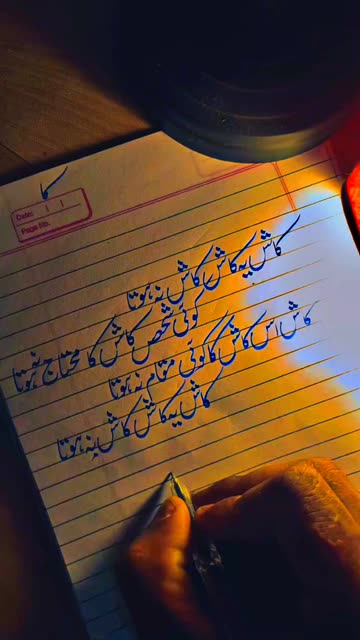 کا
Date:
Page No.
کاش یہ کاش کاش نہ ہوتا
کوئی شخص کاش کا محتاج نہ ہوتا
کاش اس کاش کا کوئی مقام نہ ہوتا
کاش یہ کاش کاش نہ ہوتا